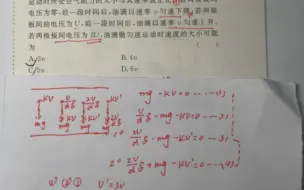 运动时所受空气阻力的大小与其速率成正比
板间电压为零,经一段时间后,油滴以速率v匀速下降;若两
极板间的电压为U,经一段时间后,油滴以速率v匀速上升。
若两极板间电压为2U,油滴做匀速运动时速度的大小可能
为 ( )
A. 3v B. 4v
C. 5v D. 6v
KV U/d q KV 2U/d q KV'
mg - KV = 0 ---- (1)
mg mg KV mg mg
U/d q - mg - KV = 0 --- (2)
1° 2U/d q - mg - KV' = 0 --- (3)
2° 2U/d q + mg - KV' = 0 --- (4)
V' = 3V